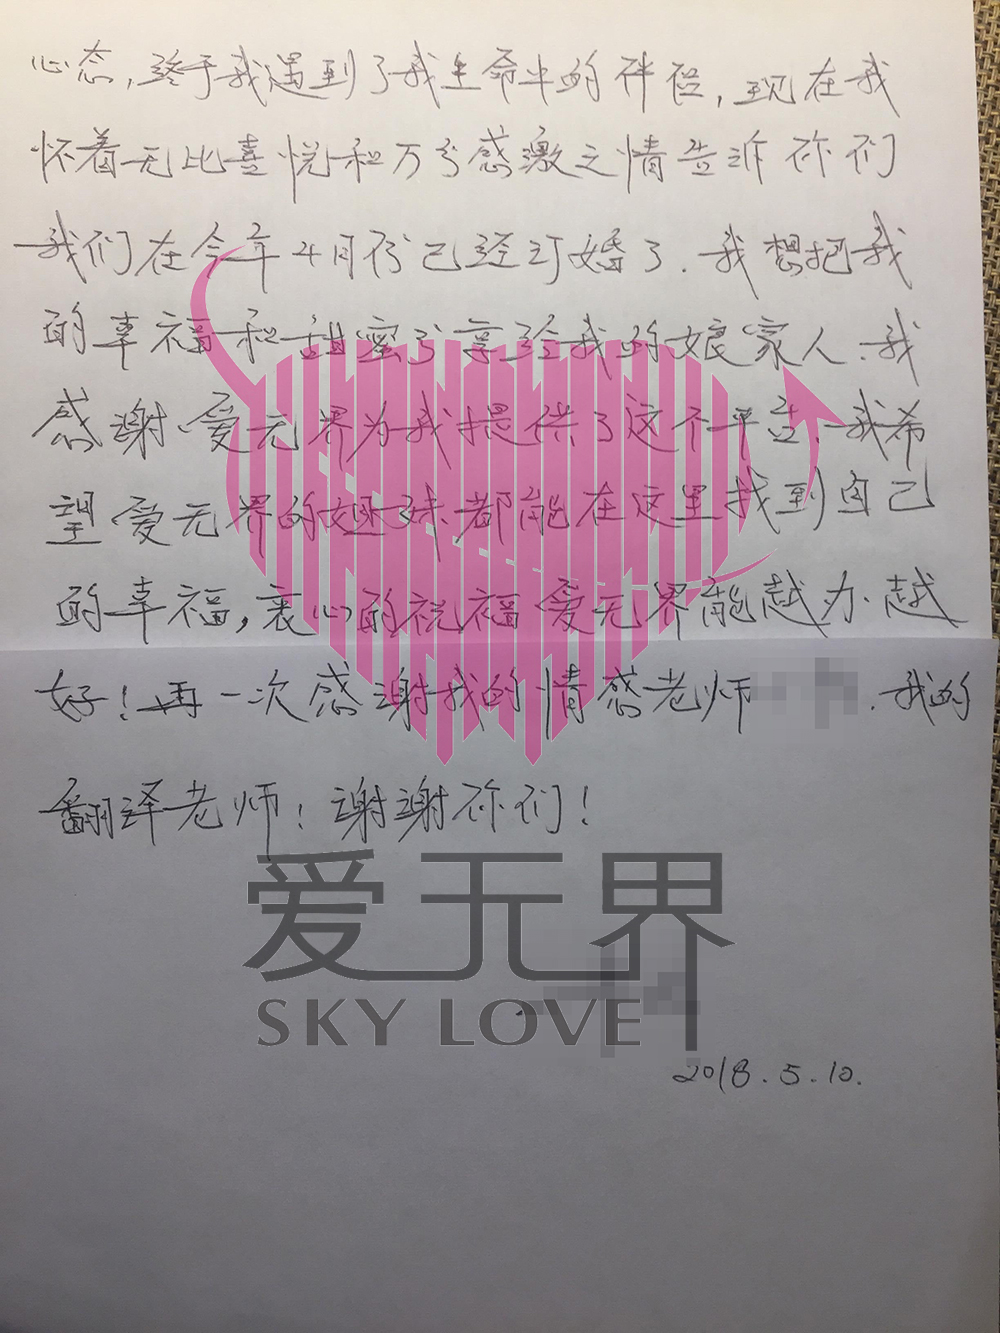 心态，终于我遇到了我生命中的伴侣，现在我
怀着无比喜悦和万分感激之情告诉你们
我们在今年4月份已经订婚了．我想把我
的幸福和甜蜜分享给我的娘家人．我
感谢爱无界为我提供了这个平台、我希
望爱无界的姐妹都能在这里找到自己
的幸福，衷心的祝福爱无界能越办越
好！再一次感谢我的情感老师．我的
翻译老师！谢谢你们！
爱无界
SKY LOVE
2018.5.10.